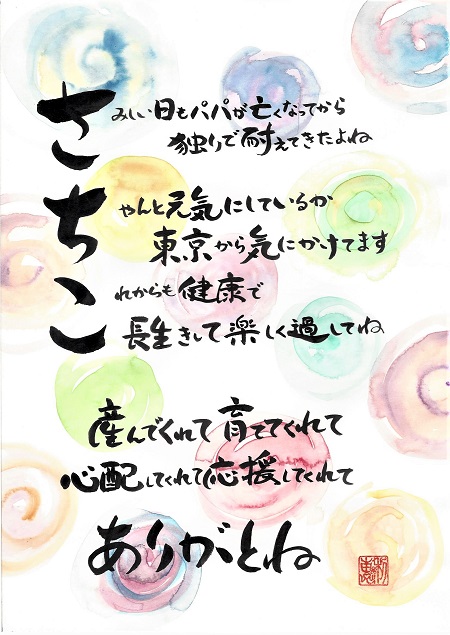 さみしい日もパパが亡くなってから
独りで耐えてきたよね
ちゃんと元気にしているか
東京から気にかけてます
これからも健康で
長生きして楽しく過してね
産んでくれて育ててくれて
心配してくれて応援してくれて
ありがとね